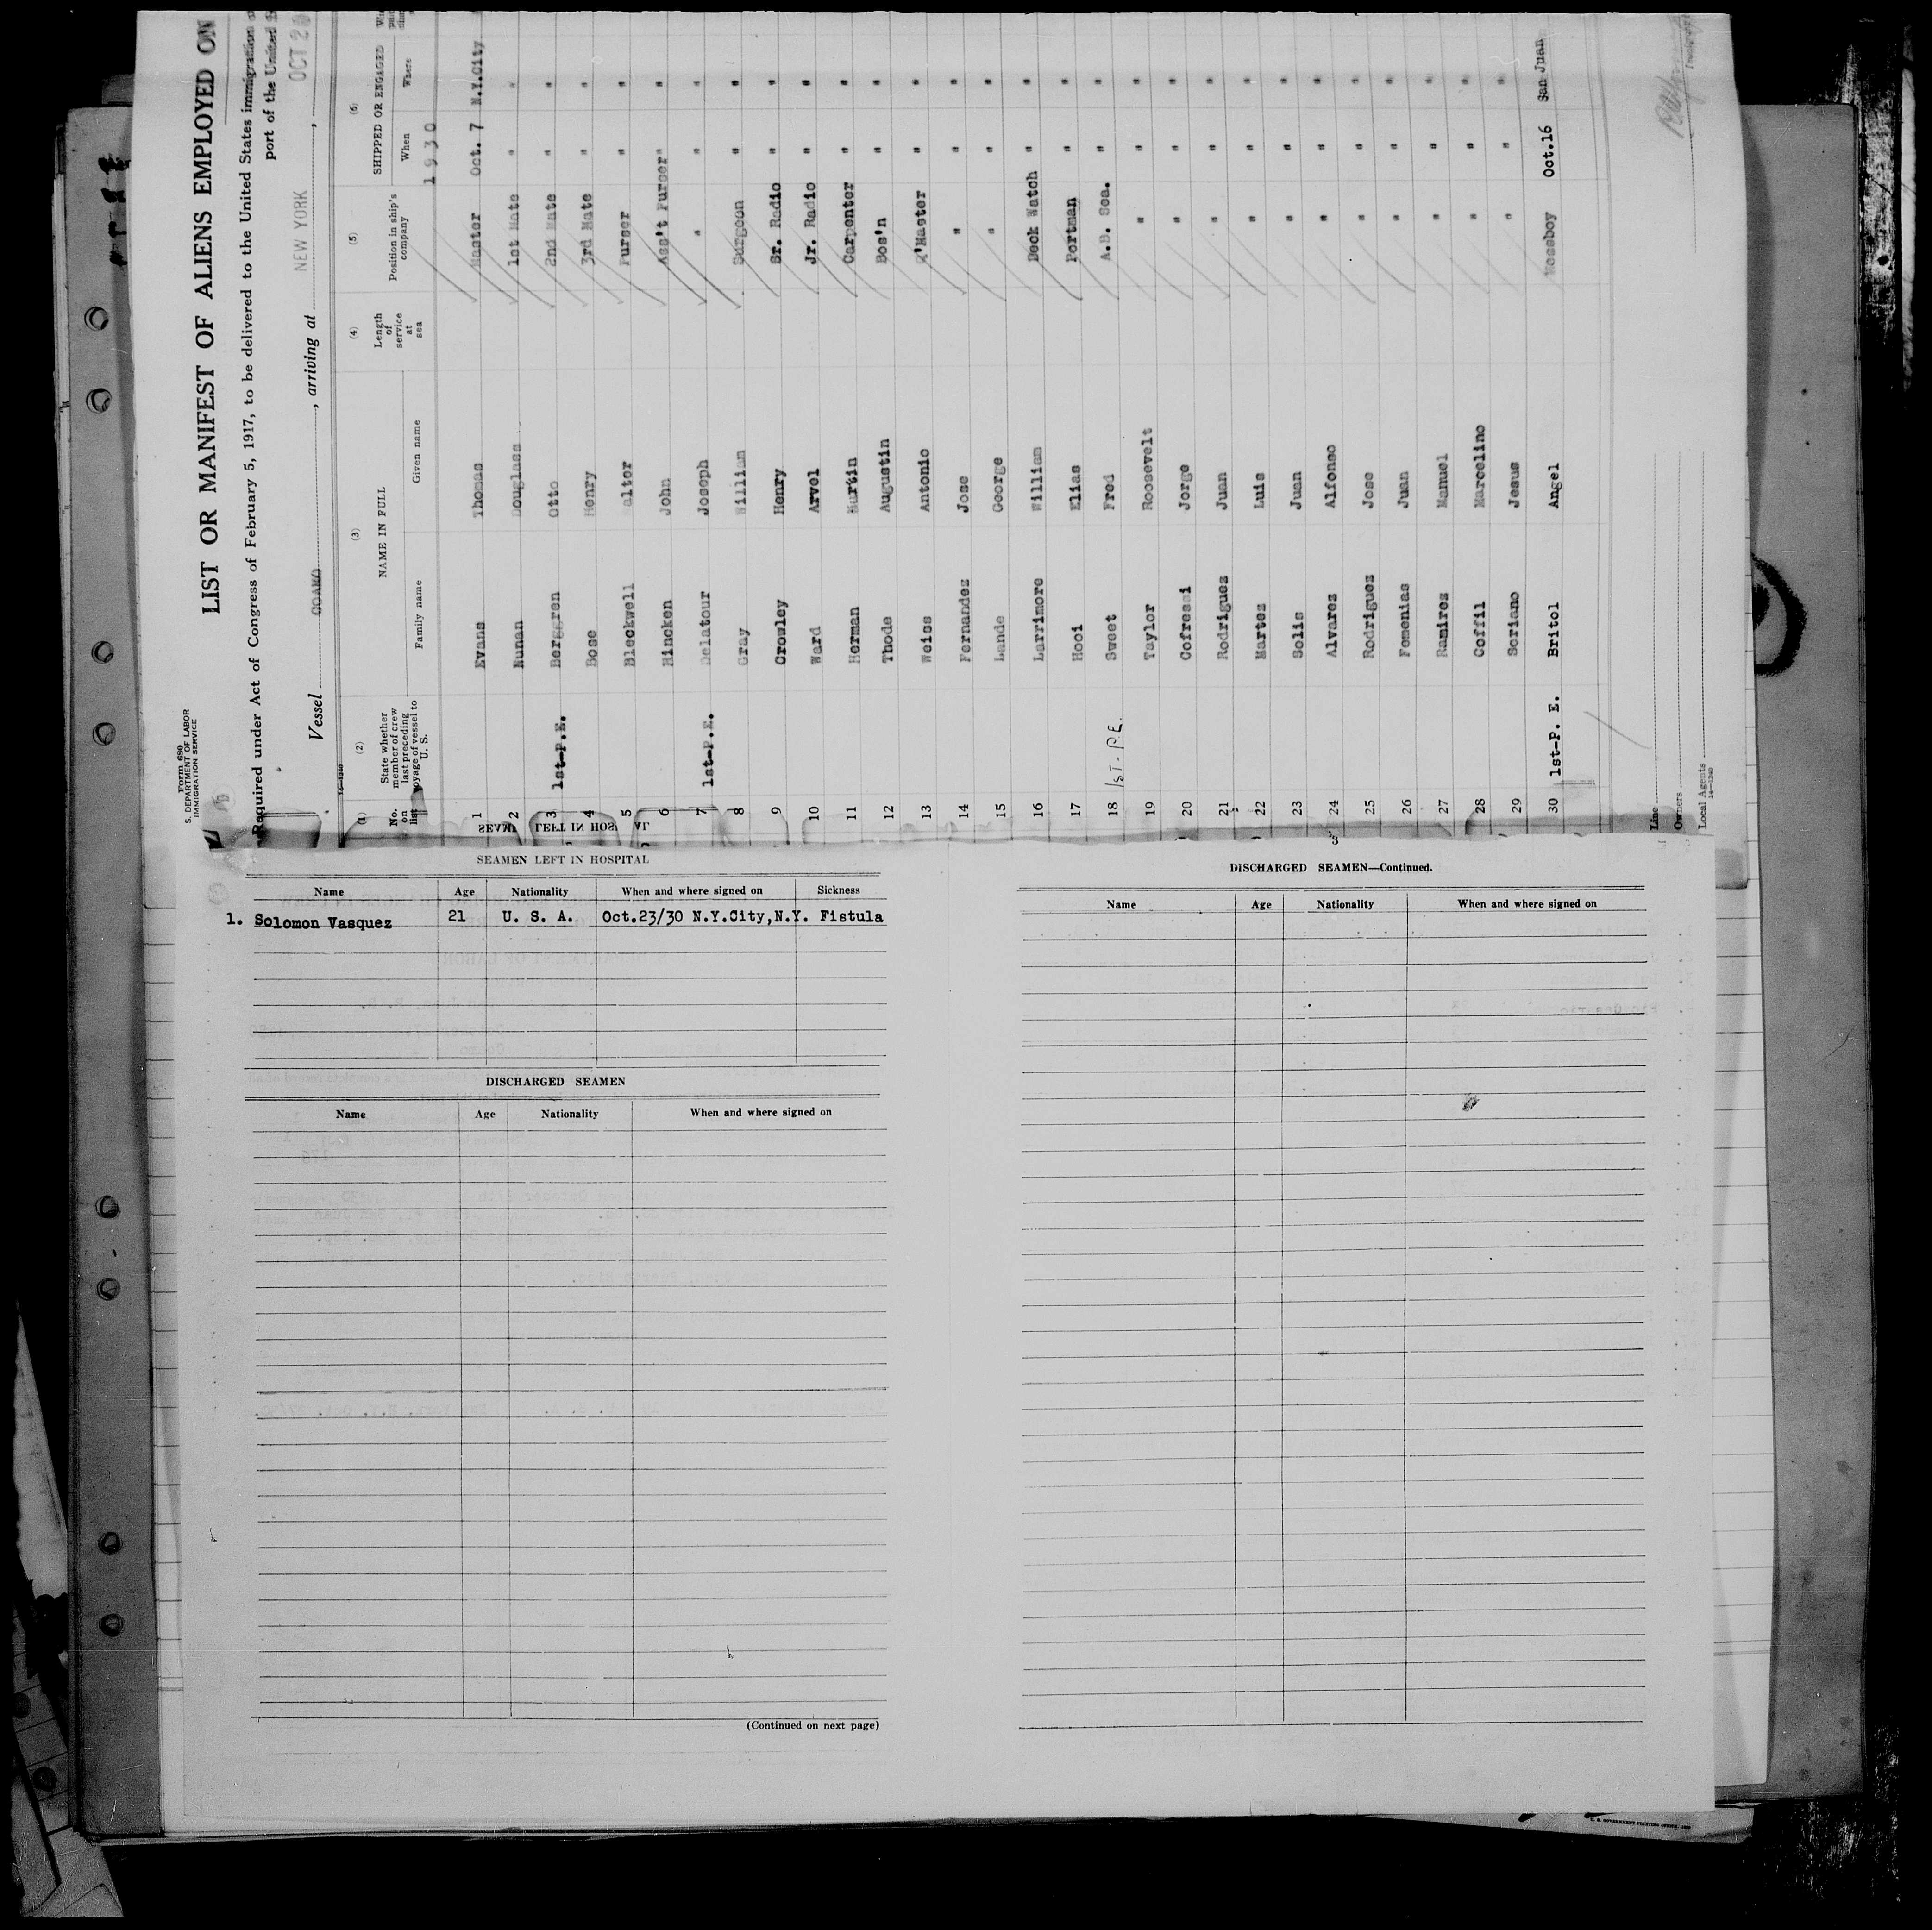 Form 680
S. DEPARTMENT OF LABOR
IMMIGRATION SERVICE
LIST OR MANIFEST OF ALIENS EMPLOYED ON
Required under Act of Congress of February 5, 1917, to be delivered to the United States immigration
port of the United
Vessel COAMO, arriving at NEW YORK, OCT 2
(1) No. on list
(2) State whether member of crew last preceding voyage of vessel to U. S.
(3) NAME IN FULL
Family name Given name
(4) Length of service at sea
(5) Position in ship's company
(6) SHIPPED OR ENGAGED
When Where
1930
1 Evans Thomas Master Oct. 7 N.Y.City
2 Nunan Douglass 1st Mate " "
3 1st-P.E. Berggren Otto 2nd Mate " "
4 Bose Henry 3rd Mate " "
5 Bleckwell Walter Purser " "
6 Hincken John Ass't Purser " "
7 1st-P.E. Delatour Joseph " " "
8 Gray William Surgeon " "
9 Crowley Henry Sr. Radio " "
10 Ward Arvel Jr. Radio " "
11 Herman Martin Carpenter " "
12 Thode Augustin Bos'n " "
13 Weiss Antonio Q'Master " "
14 Fernandez Jose " " "
15 Lande George " " "
16 Larrimore William Deck Watch " "
17 Hooi Elias Portman " "
18 1ST-P.E. Sweet Fred A.B. Sea. " "
19 Taylor Roosevelt " " "
20 Cofressi Jorge " " "
21 Rodriguez Juan " " "
22 Martez Luis " " "
23 Solis Juan " " "
24 Alvarez Alfonso " " "
25 Rodriguez Jose " " "
26 Femenias Juan " " "
27 Ramirez Manuel " " "
28 Coffil Marcelino " " "
29 Soriano Jesus " " "
30 1st-P. E. Britol Angel Messboy Oct.16 San Juan
Line
Owners
Local Agents
SEAMEN LEFT IN HOSPITAL
Name Age Nationality When and where signed on Sickness
1. Solomon Vasquez 21 U. S. A. Oct.23/30 N.Y.City,N.Y. Fistula
DISCHARGED SEAMEN
Name Age Nationality When and where signed on
(Continued on next page)
DISCHARGED SEAMEN—Continued.
Name Age Nationality When and where signed on
U. S. GOVERNMENT PRINTING OFFICE